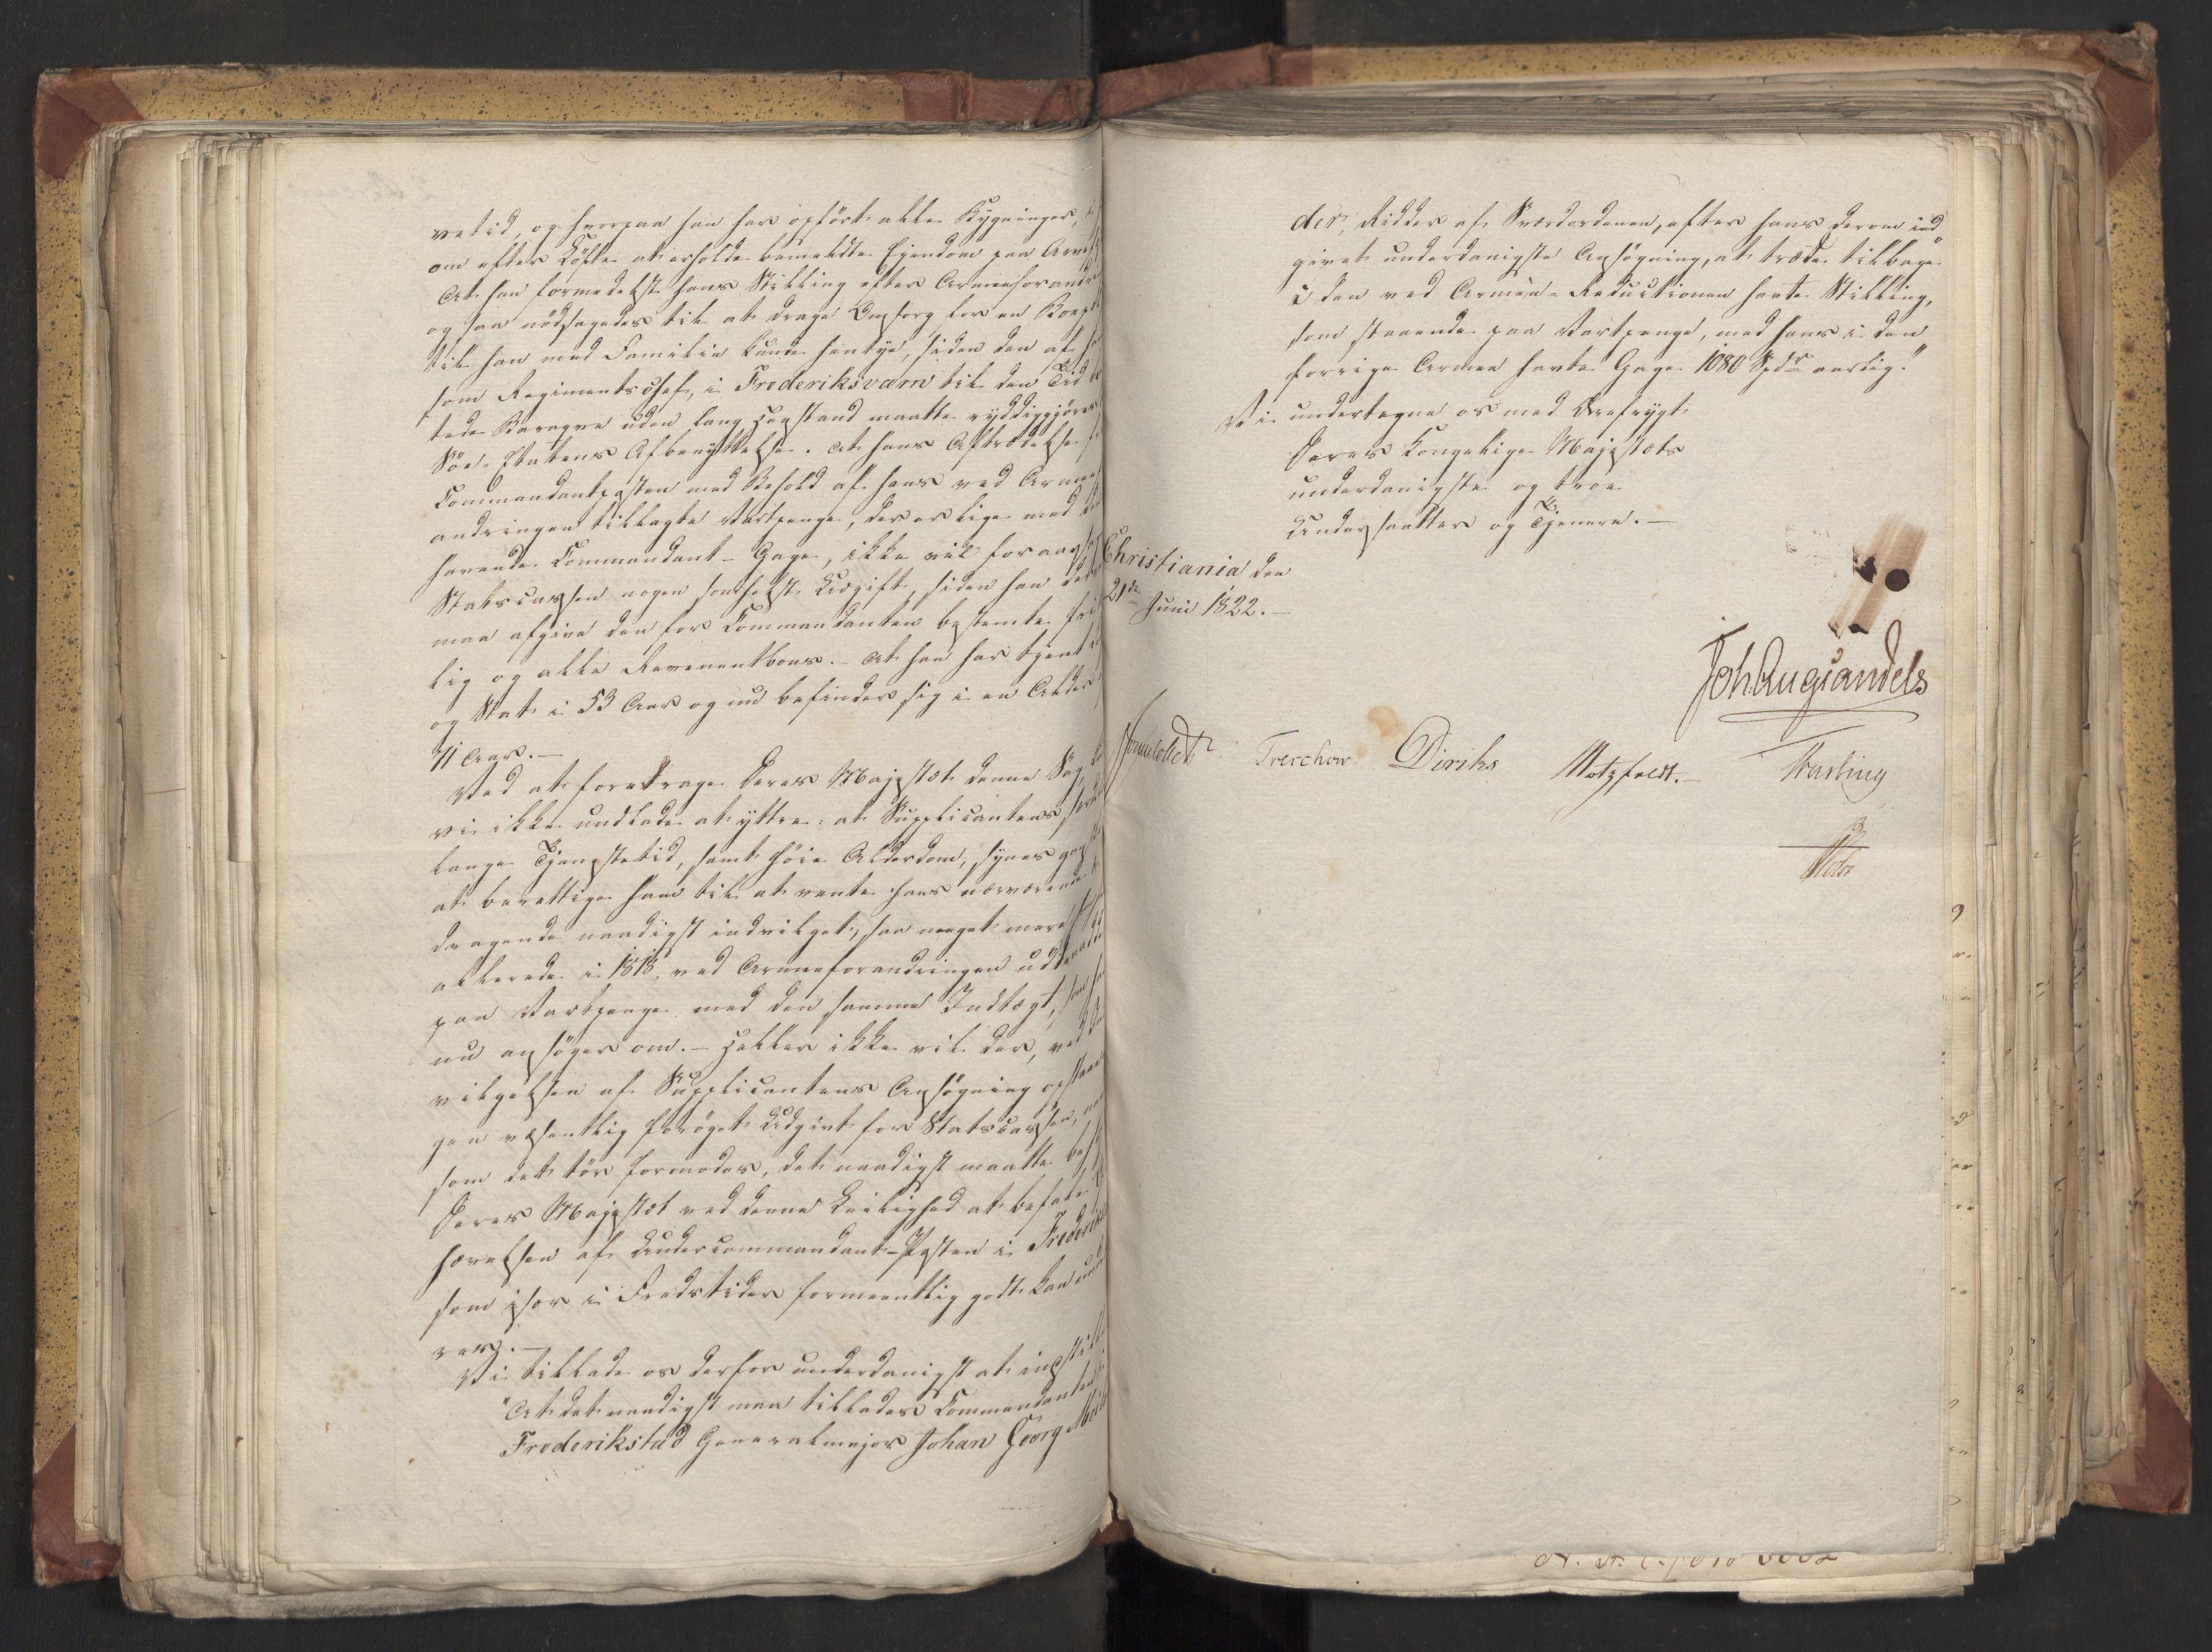 vetid, og hvorpaa han har opført alle Bygninger,
om efter Løfte at erholde bemeldte Eiendom paa Arve
At han formedelst hans Stilling efter Armeeforandr
og saa nødsagedes til at drage Omsorg for en Boep
til han med Familie kunde hentye, siden den af h
som Regimentschef, i Frederiksværn til den Tid be
tede Baraque uden lang Henstand maatte ryddiggjøres
Søe-Etatens Afbenyttelse. At hans Aftrædelse f
Commandantposten med Behold af hans ved Armee
andringen tillagte Vartpenge, der er lige med de
havende Commandant-Gage, ikke vil foraarsa
Statscassen nogen somhelst Udgift, siden han der
maa afgive den for Commandanten bestemte fri
lig og alle Revenentbous. – At han har tjent
og Stat i 53 Aar og nu befinder sig i en Alder
71 Aar. –
Ved at foredrage Deres Majestæt denne Sag,
vi ikke undlade at yttre: at Supplicantens,
lange Tjenestetid, samt høie Alderdom, synes
at berettige ham til at vente hans nærværende
dragende naadigst indvilget, saa meget mere
allerede i 1818, ved Armeeforandringen udtraadte
paa Vartpenge, med den samme Indtægt, som han
nu ansøger om. – Heller ikke vil der, ved
vilgelsen af Supplicantens Ansøgning opstaae
gen væsentlig forøget Udgivt for Statscassen, naar
som det tør formodes, det naadigst maatte
Deres Majestæt ved denne Leilighed at befale
hævelsen af Undercommandant-Posten i Frederiks
som især i Fredstider formeentlig godt kan und
res. –
Vi tillade os derfor underdanigst at indstille
"At det naadigst maa tillades Commandanten i
Frederikstad Generalmajor Johan Georg Mei
der, Ridder af Sværdordenen, efter hans derom ind
givet underdanigste Ansøgning, at træde tilbage
i den ved Armée-Reductionen havte Stilling,
som staaende paa Vartpenge, med hans i den
forrige Armee havte Gage 1080 Spdr aarlig."
Vi undertegne os med Ærefrygt
Deres Kongelige Majestæts
underdanigste og troe
Undersaatter og Tjenere. –
Christiania den
21de Juni 1822. –
Joh Aug Sandels
Sommerfeldt Treschow Diriks Motzfeldt. – Fasting
Holst